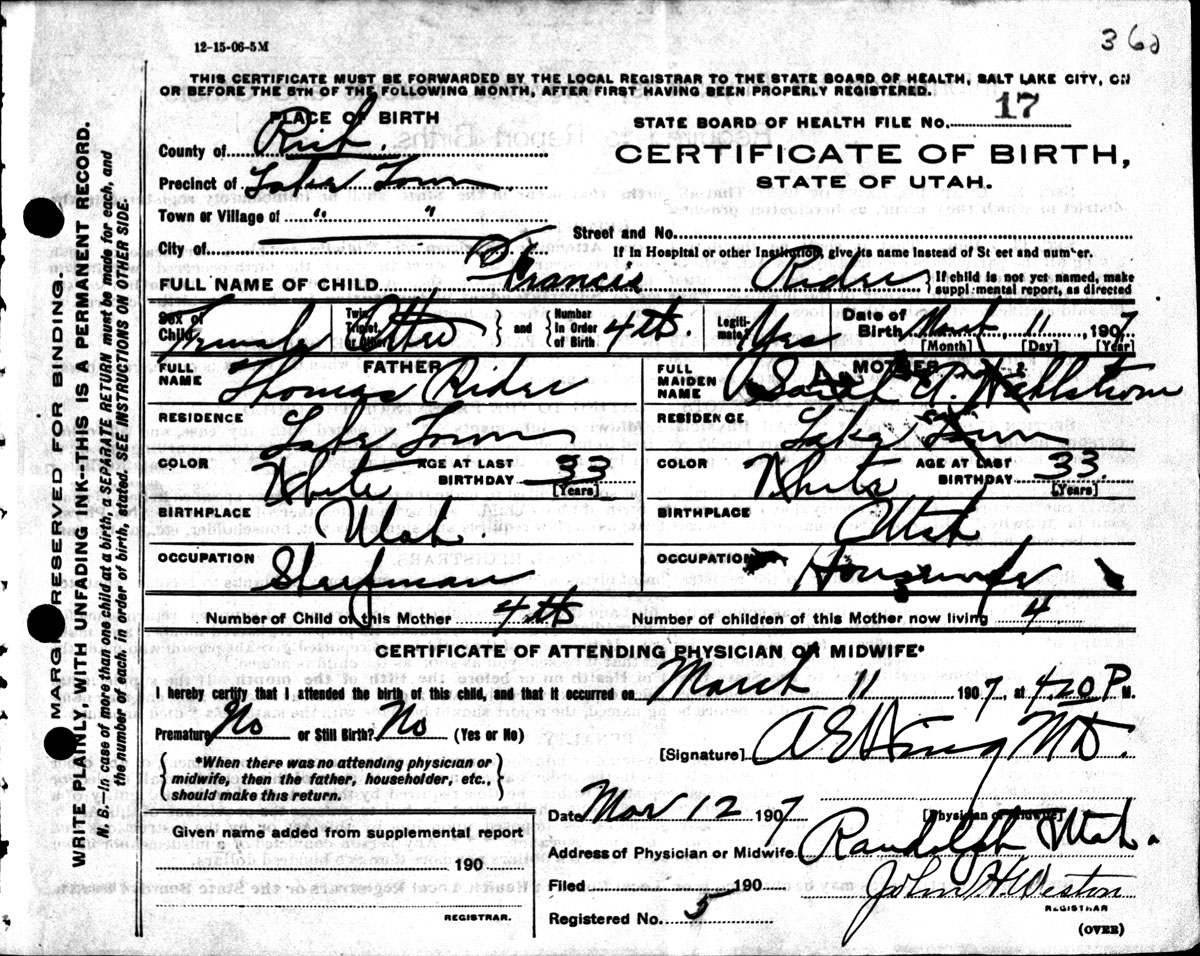 12-15-06-5M
THIS CERTIFICATE MUST BE FORWARDED BY THE LOCAL REGISTRAR TO THE STATE BOARD OF HEALTH, SALT LAKE CITY, ON
OR BEFORE THE 5TH OF THE FOLLOWING MONTH, AFTER FIRST HAVING BEEN PROPERLY REGISTERED.
PLACE OF BIRTH
STATE BOARD OF HEALTH FILE NO. 17
County of Rich.
CERTIFICATE OF BIRTH,
Precinct of Lake Town
STATE OF UTAH.
Town or Village of " "
Street and No.
City of
If in Hospital or other Institution, give its name instead of Street and number.
FULL NAME OF CHILD Francis Rider
{ If child is not yet named, make
supplemental report, as directed
Sex of Child Female
Twin, Triplet, or Other } and { Number in Order of Birth 4th.
Legitimate? Yes
Date of Birth March 11 1907
[Month] [Day] [Year]
FATHER
FULL NAME Thomas Rider
RESIDENCE Lake Town
COLOR White AGE AT LAST BIRTHDAY 33 [Years]
BIRTHPLACE Utah.
OCCUPATION
MOTHER
FULL MAIDEN NAME Sarah A.
RESIDENCE Lake Town
COLOR White AGE AT LAST BIRTHDAY 33 [Years]
BIRTHPLACE Utah
OCCUPATION Housewife
Number of Child of this Mother 4th Number of children of this Mother now living 4
CERTIFICATE OF ATTENDING PHYSICIAN OR MIDWIFE*
I hereby certify that I attended the birth of this child, and that it occurred on March 11 1907, at 4 20 P M.
Premature No or Still Birth? No (Yes or No)
[Signature] MD.
{ *When there was no attending physician or
midwife, then the father, householder, etc.,
should make this return. }
[Physician or Midwife]
Date Mar 12 1907
Given name added from supplemental report
190
REGISTRAR.
Address of Physician or Midwife Randolph Utah.
Filed 190 John H Weston
REGISTRAR
Registered No. 5
(OVER)
MARGIN RESERVED FOR BINDING.
WRITE PLAINLY, WITH UNFADING INK--THIS IS A PERMANENT RECORD.
N. B.--In case of more than one child at a birth, a SEPARATE RETURN must be made for each, and
the number of each in order of birth, stated. SEE INSTRUCTIONS ON OTHER SIDE.